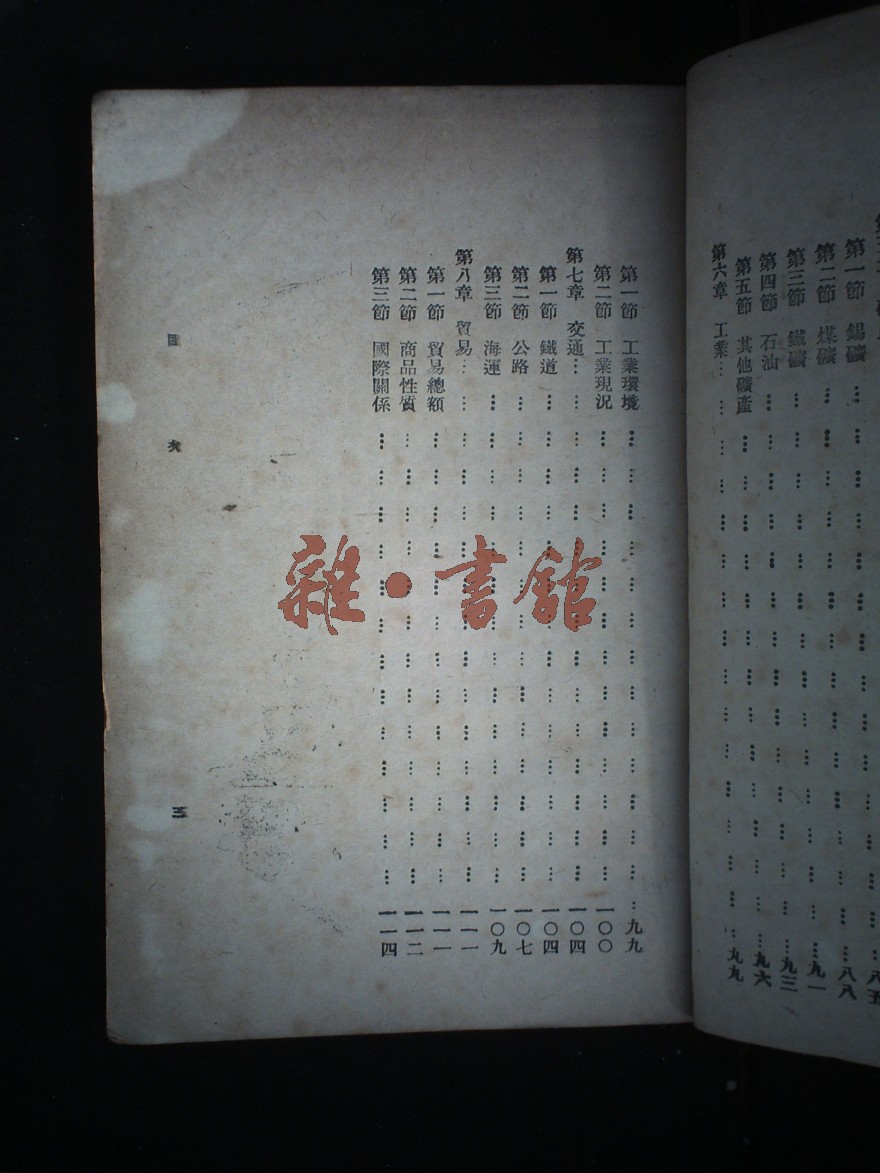 第一節 錫礦………………八五
第二節 煤礦………………八八
第三節 鐵礦………………九一
第四節 石油………………九三
第五節 其他礦產………………九六
第六章 工業………………九九
第一節 工業環境………………九九
第二節 工業現況………………一〇〇
第七章 交通………………一〇四
第一節 鐵道………………一〇四
第二節 公路………………一〇七
第三節 海運………………一〇九
第八章 貿易………………一一一
第一節 貿易總額………………一一一
第二節 商品性質………………一一二
第三節 國際關係………………一一四
目 次 三
雜·書館